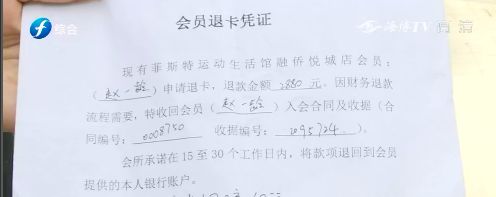 综合
海博TV 高清
会员退卡凭证
现有菲斯特运动生活馆融侨悦城店会员:
(赵一龄)申请退卡,退款金额 2880 元。因财务退款
流程需要,特收回会员(赵一龄)入会合同及收据(合
同编号: 0008750 收据编号: 2095724 )。
会所承诺在 15 至 30 个工作日内,将款项退回到会员
提供的本人银行账户。